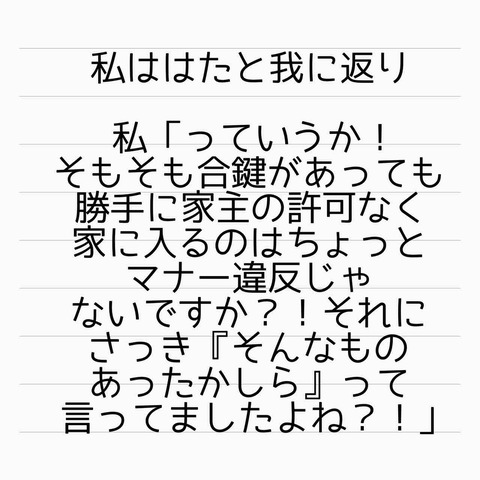 私ははたと我に返り
私「っていうか！
そもそも合鍵があっても
勝手に家主の許可なく
家に入るのはちょっと
マナー違反じゃ
ないですか？！それに
さっき『そんなもの
あったかしら』って
言ってましたよね？！」